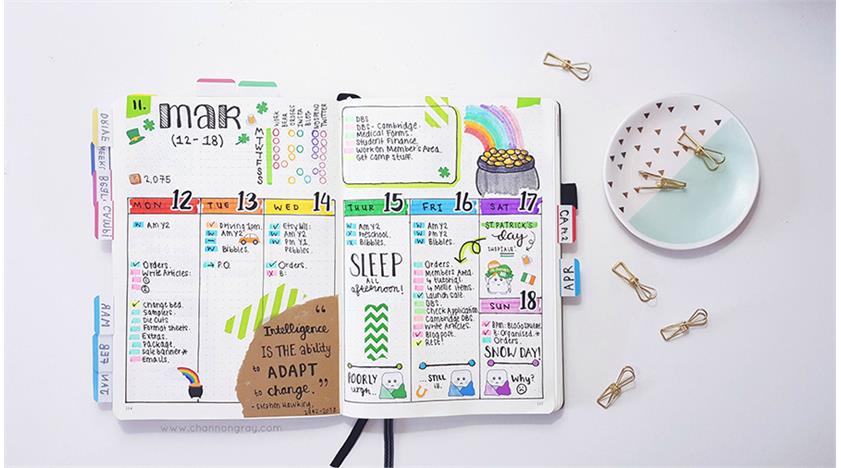 11.
MAR
(12-18)
WORK
ORDERS
INSTA
BLOG
TWITTER
M
T
W
T
F
S
S
2,075
DBS
DBS - Cambridge.
Medical Forms.
Student Finance.
Work on Member's Area.
Get camp stuff.
MON 12
Am Y2
Orders.
Write Articles:
①
②
Change bed.
Samplers.
Die Cuts
Format sheets.
Extras.
Package.
Sale banner*
Emails.
TUE 13
Driving 1pm.
Am Y2
Bibbles.
P.O.
WED 14
Etsy bill:
Am Y2
Pm Y1
Pebbles.
Orders.
B:
"Intelligence
IS THE ability
to ADAPT
to change."
- Stephen Hawking.
1942-2018
THUR 15
Am Y2
Preschool.
Bibbles.
SLEEP
ALL
afternoon!
POORLY
urgh...
FRI 16
Am Y2
Pm Y2
Bibbles.
Orders.
Members Area.
4 tutorial
4 Mellie items.
Launch sale.
DBS.
Check Application
Cambridge DBS.
Write Articles.
Blog post.
Rest!
...STILL
ill.
SAT 17
ST. PATRICK'S
day
SUN 18
B: Organised.*
Orders.
SNOW DAY!
Why?
MAR
FEB
JAN
CAM2
APR
www.channongray.com